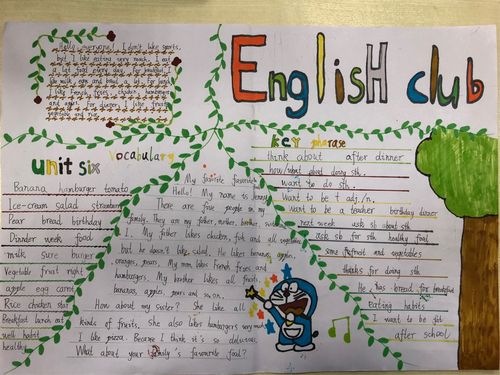 English club
Hello everyone! I don't like sports,
but I like eating very much. I eat
For dinner, I like fruits,
unit six
vocabulary
Banana hamburger tomato
Ice-cream salad strawberry
Pear bread birthday
Dinner week food
milk sure burger
Vegetable fruit right
apple egg carrot
Rice chicken star
Breakfast lunch eat
well habit
healthy
My favorite favourite
Hello! My name is
There are five people in my
family. They are my father, mother, brother, sister
My father likes chicken, fish and all vegetable
but he doesn't like salad. He likes bananas, apple,
oranges, pears. My mum likes French fries and
hamburgers. My brother likes all fruits,
bananas, apples, pears and so on.
How about my sister? She like all
kinds of fruits. She also likes hamburgers very much
I like pizza. Because I think it's so delicious.
What about your family's favourite food?
key pharase
think about after dinner
how/what about doing sth.
want to do sth.
want to be + adj./n.
want to be a teacher birthday dinner
next week ask sb about sth
ask sb for sth healthy food
some fruit and vegetables
thanks for doing sth
He has bread for breakfast
eating habits
I want to be fat
after school